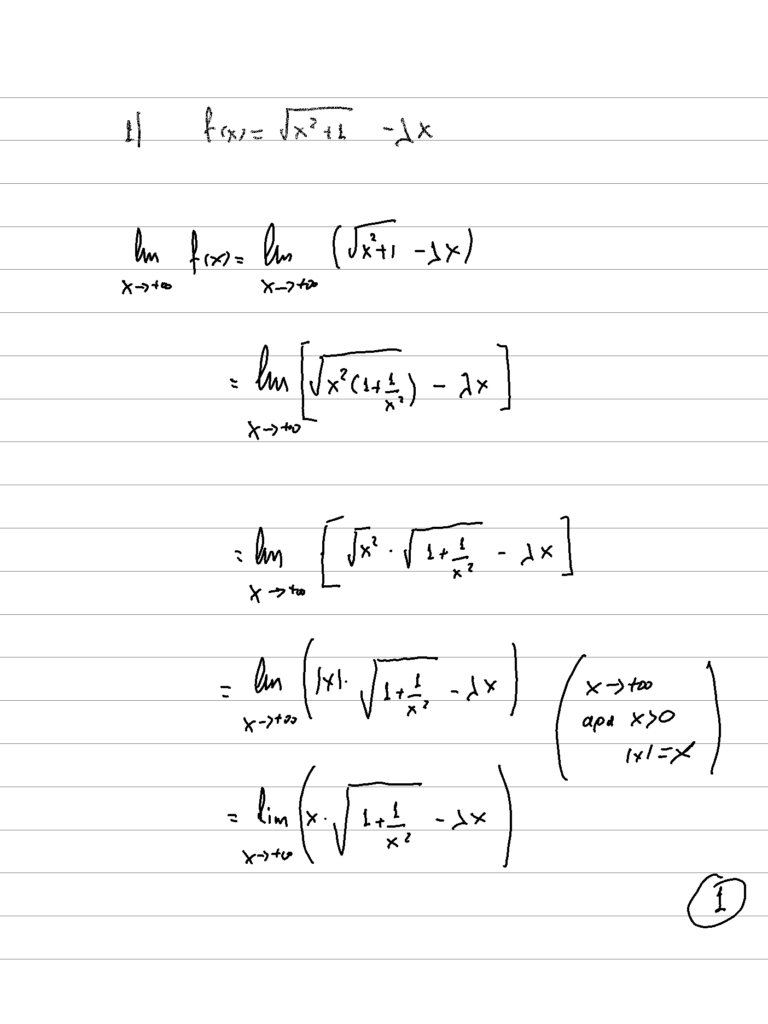 1) f(x) = √(x²+1) - λx
lim x→+∞ f(x) = lim x→+∞ (√(x²+1) - λx)
= lim x→+∞ [√(x²(1+1/x²)) - λx]
= lim x→+∞ [√x² · √(1+1/x²) - λx]
= lim x→+∞ (|x| · √(1+1/x²) - λx) ( x→+∞
αρα x>0
|x|=x )
= lim x→+∞ (x · √(1+1/x²) - λx)
1